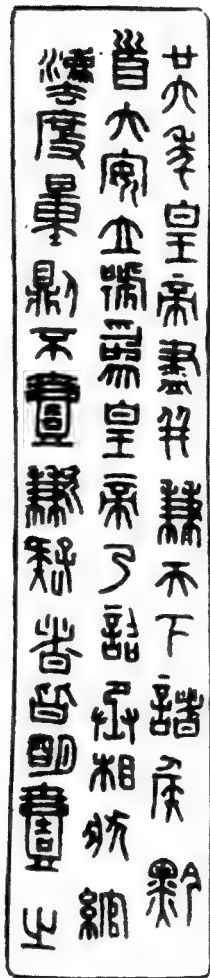 廿六年皇帝盡并兼天下諸侯黔
首大安立號為皇帝乃詔丞相狀綰
灋度量則不壹歉疑者皆明壹之